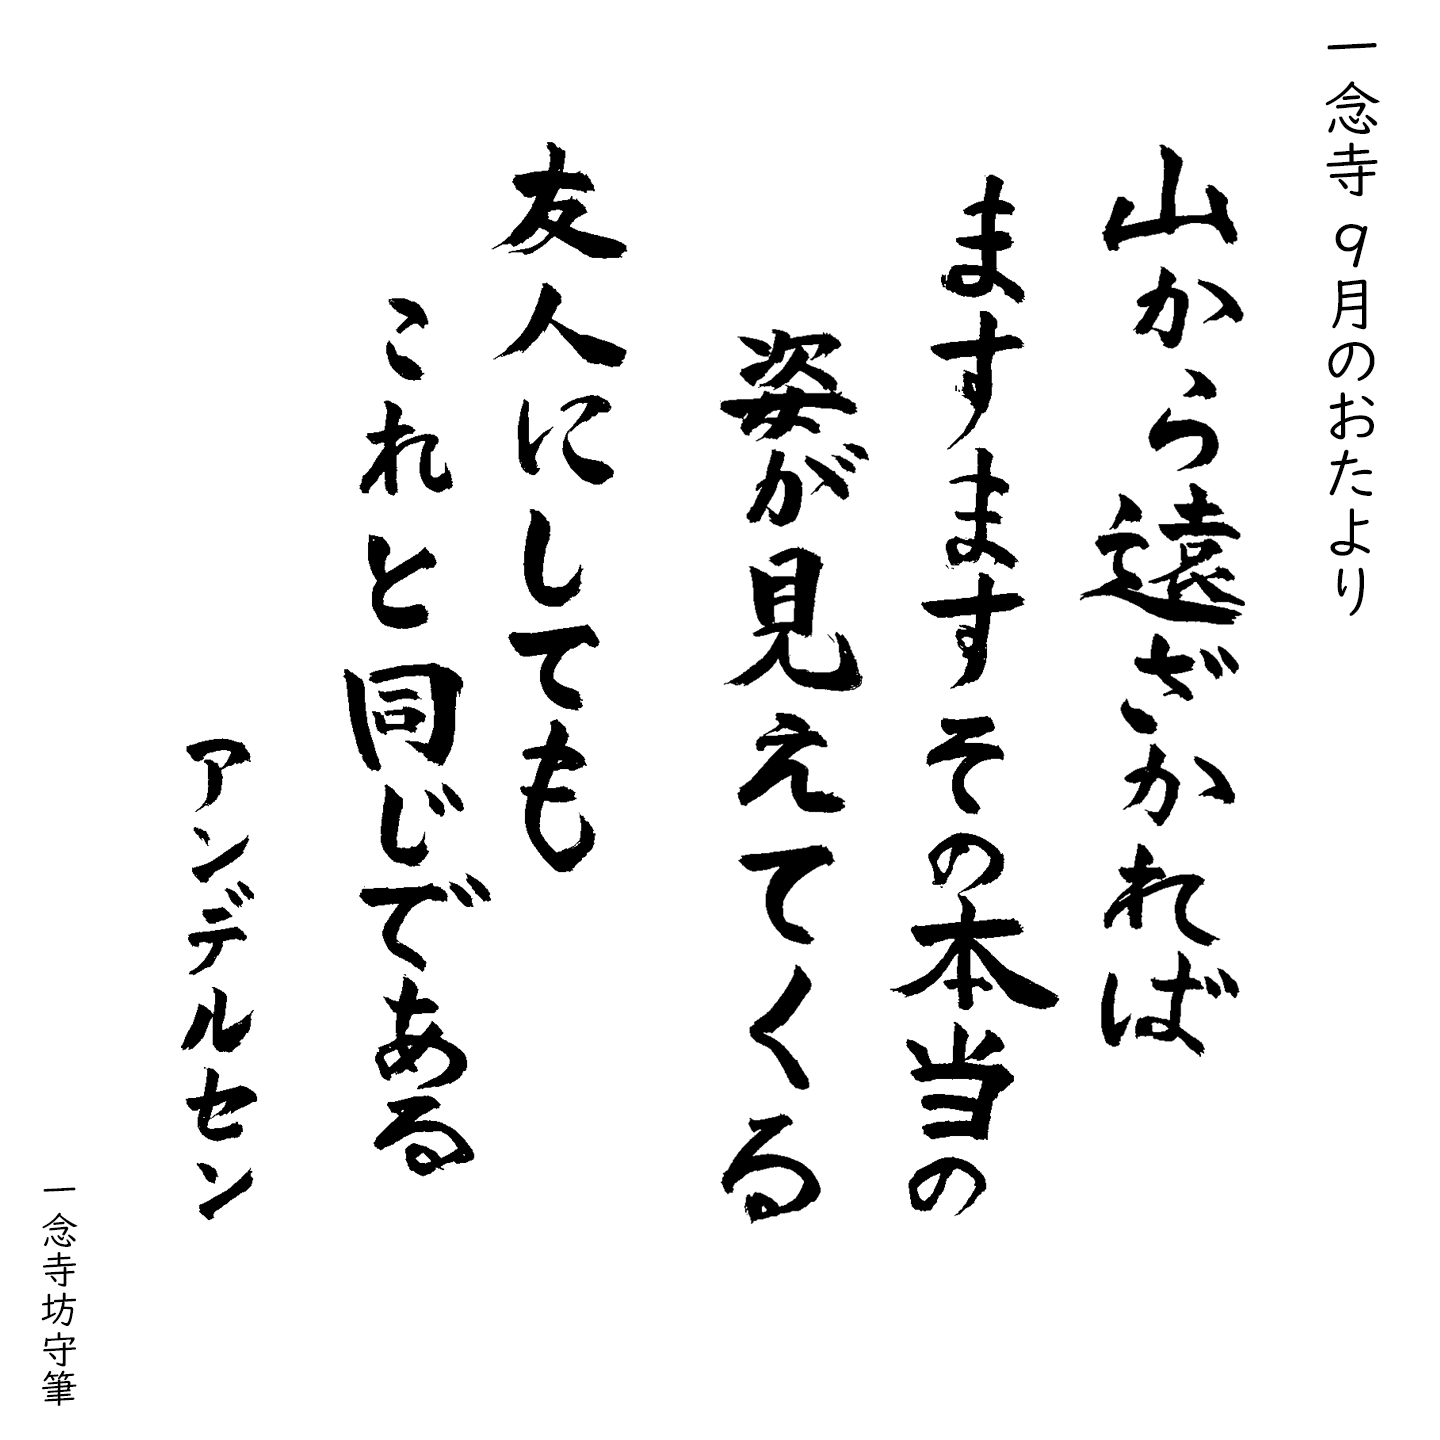 一念寺 9月のおたより
山から遠ざかれば
ますますその本当の
姿が見えてくる
友人にしても
これと同じである
アンデルセン
一念寺坊守筆